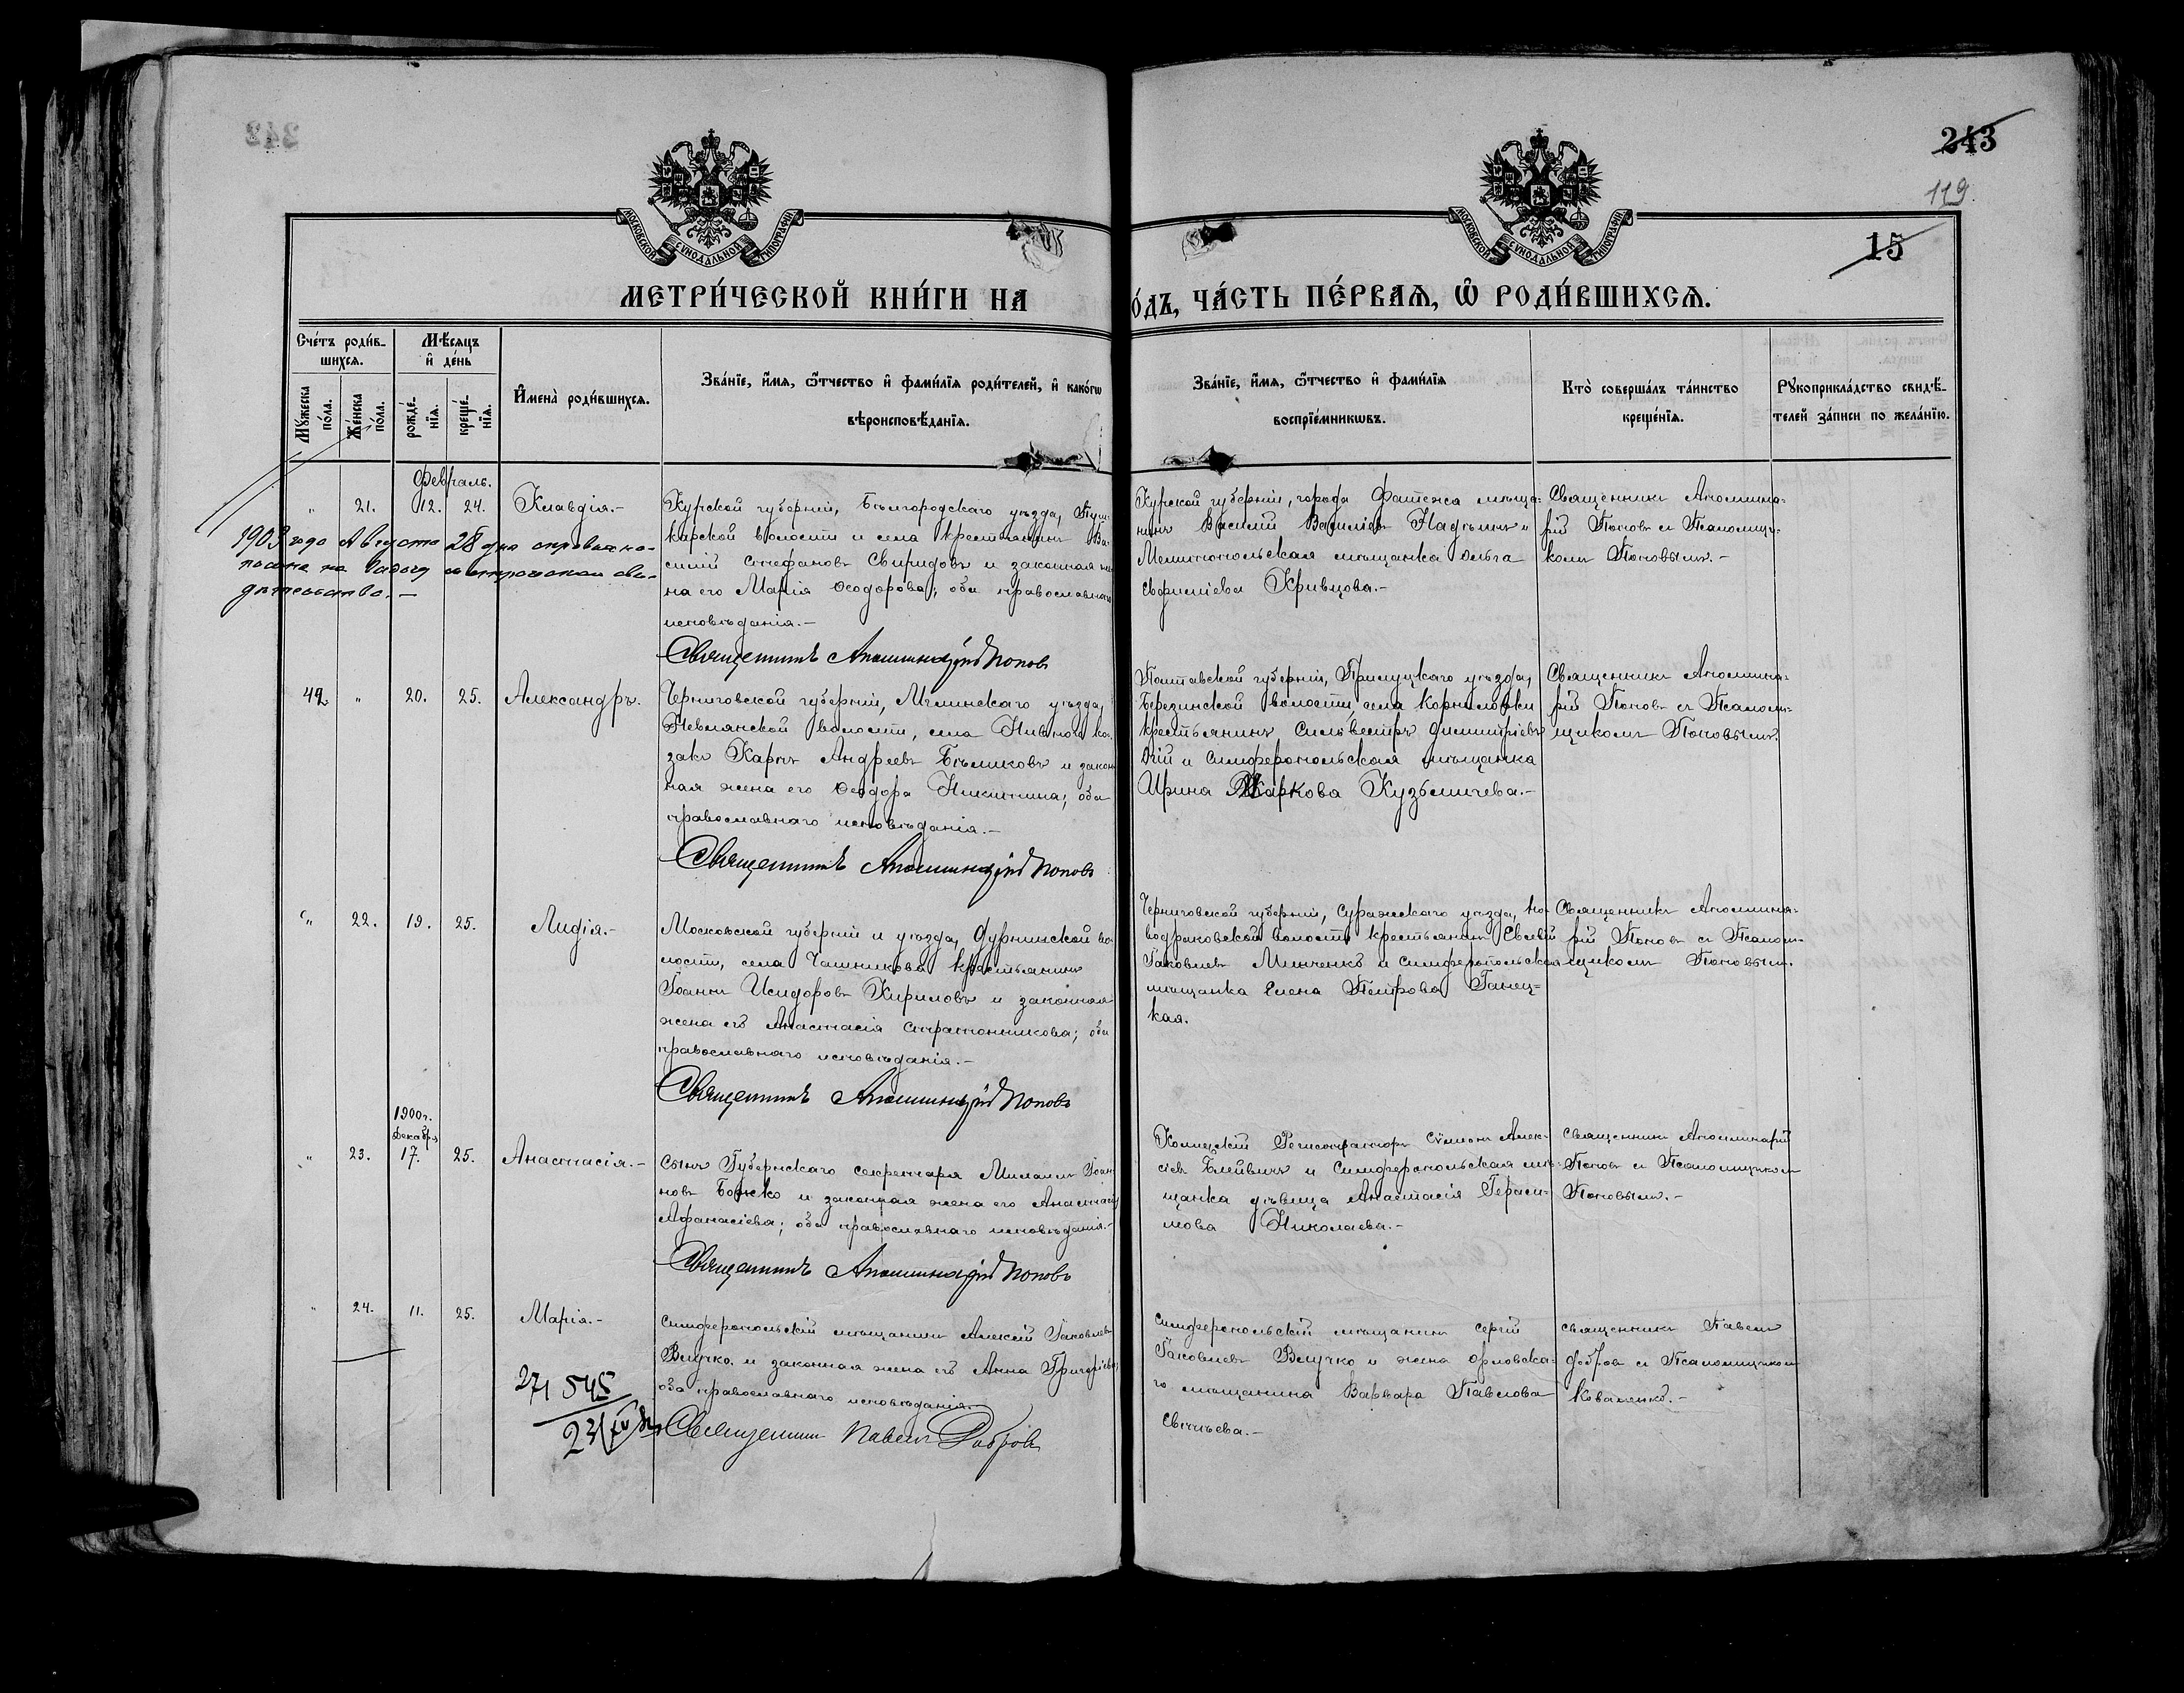 243
119.
15
МОСКОВСКОЙ СѴНОДАЛЬНОЙ ТИПОГРАФІИ
МОСКОВСКОЙ СѴНОДАЛЬНОЙ ТИПОГРАФІИ
МЕТРИ́ЧЕСКОЙ КНИ́ГИ НА
О́ДЪ, ЧА́СТЬ ПЕ́РВАѦ, Ѡ҆ РОДИ́ВШИХСѦ.
Сче́тъ роди́в-
шихсѧ.
Мꙋжеска по́ла.
Же́нска по́ла.
Мѣ́сѧцъ
и҆ де́нь
рожде́-
нїѧ.
креще́-
нїѧ.
И҆мена̀ роди́вшихсѧ.
Зва́нїе, и҆́мѧ, ѻ҆́тчество и҆ фами́лїѧ роди́телей, и҆ како́гѡ
вѣроисповѣ́данїѧ.
Зва́нїе, и҆́мѧ, ѻ҆́тчество и҆ фами́лїѧ
воспрїе́мникѡвъ.
Кто̀ соверша́лъ та́инство
креще́нїѧ.
Рꙋкоприкла́дство свидѣ́-
телей за́писи по жела́нїю.
Февраль.
" 21. 12. 24. Клавдія.-
Курской губерніи, Бѣлгородскаго уѣзда,
карской волости и села крестьянинъ Ва-
силій Стефановъ Свиридовъ и законная же-
на его Марія Ѳеодорова; оба православнаго
исповѣданія.-
Священникъ Аполлинарій Поповъ
Курской губерніи, города Фатежа мѣща-
нинъ Василій Василіевъ Надѣинъ и
Мелитопольская мѣщанка Ольга
Кривцова.-
Священникъ Аполлина-
рій Поповъ съ Псаломщи-
комъ Поповымъ.-
1903 года Августа 28 дня
дѣтельство.-
42 " 20. 25. Александръ.
Черниговской губерніи, Мглинскаго уѣзда,
волости, села Нивнаго ко-
закъ Карпъ Андреевъ Бѣликовъ и закон-
ная жена его Ѳеодора Никитина; оба
православнаго исповѣданія.-
Священникъ Аполлинарій Поповъ
Полтавской губерніи, Прилуцкаго уѣзда,
Березинской волости, села Корниловки
крестьянинъ Сильвестръ Димитріевъ
и Симферопольская мѣщанка
Ирина Маркова Кузьмичева.-
Священникъ Аполлина-
рій Поповъ съ Псалом-
щикомъ Поповымъ.
" 22. 19. 25. Лидія.-
Московской губерніи и уѣзда, Дурнинской во-
лости, села Чашникова крестьянинъ
Іоаннъ Исидоровъ Кириловъ и законная
жена его Анастасія Стратонникова; оба
православнаго исповѣданія.-
Священникъ Аполлинарій Поповъ
Черниговской губерніи, Суражскаго уѣзда, Но-
водроковской волости крестьянинъ Евсевій
Іаковлевъ Минченко и Симферопольская
мѣщанка Елена Петрова Ганец-
кая.
Священникъ Аполлина-
рій Поповъ съ Псалом-
щикомъ Поповым.
1900 г.
Декабрь
" 23. 17. 25. Анастасія.-
Сынъ Губернскаго секретаря Михаилъ Іоан-
новъ Божко и законная жена его Анастасія
Афанасіева; оба православнаго исповѣданія.-
Священникъ Аполлинарій Поповъ
Коллежскій Регистраторъ Сѵмеонъ Алек-
сіевъ и Симферопольская мѣ-
щанка дѣвица Анастасія Гераси-
мова Николаева.-
Священникъ Аполлинарій
Поповъ съ Псаломщикомъ
Поповымъ.-
" 24. 11. 25. Марія.-
Симферопольскій мѣщанинъ Алексій Іаковлевъ
Велучко и законная жена его Анна Григоріева;
оба православнаго исповѣданія.-
Священникъ Павелъ Добровъ
Симферопольскій мѣщанинъ Сергій
Іаковлевъ Велучко и жена Орловска-
го мѣщанина Варвара Павлова
Священникъ Павелъ
Добровъ съ Псаломщикомъ
Коваленко.-
271 545